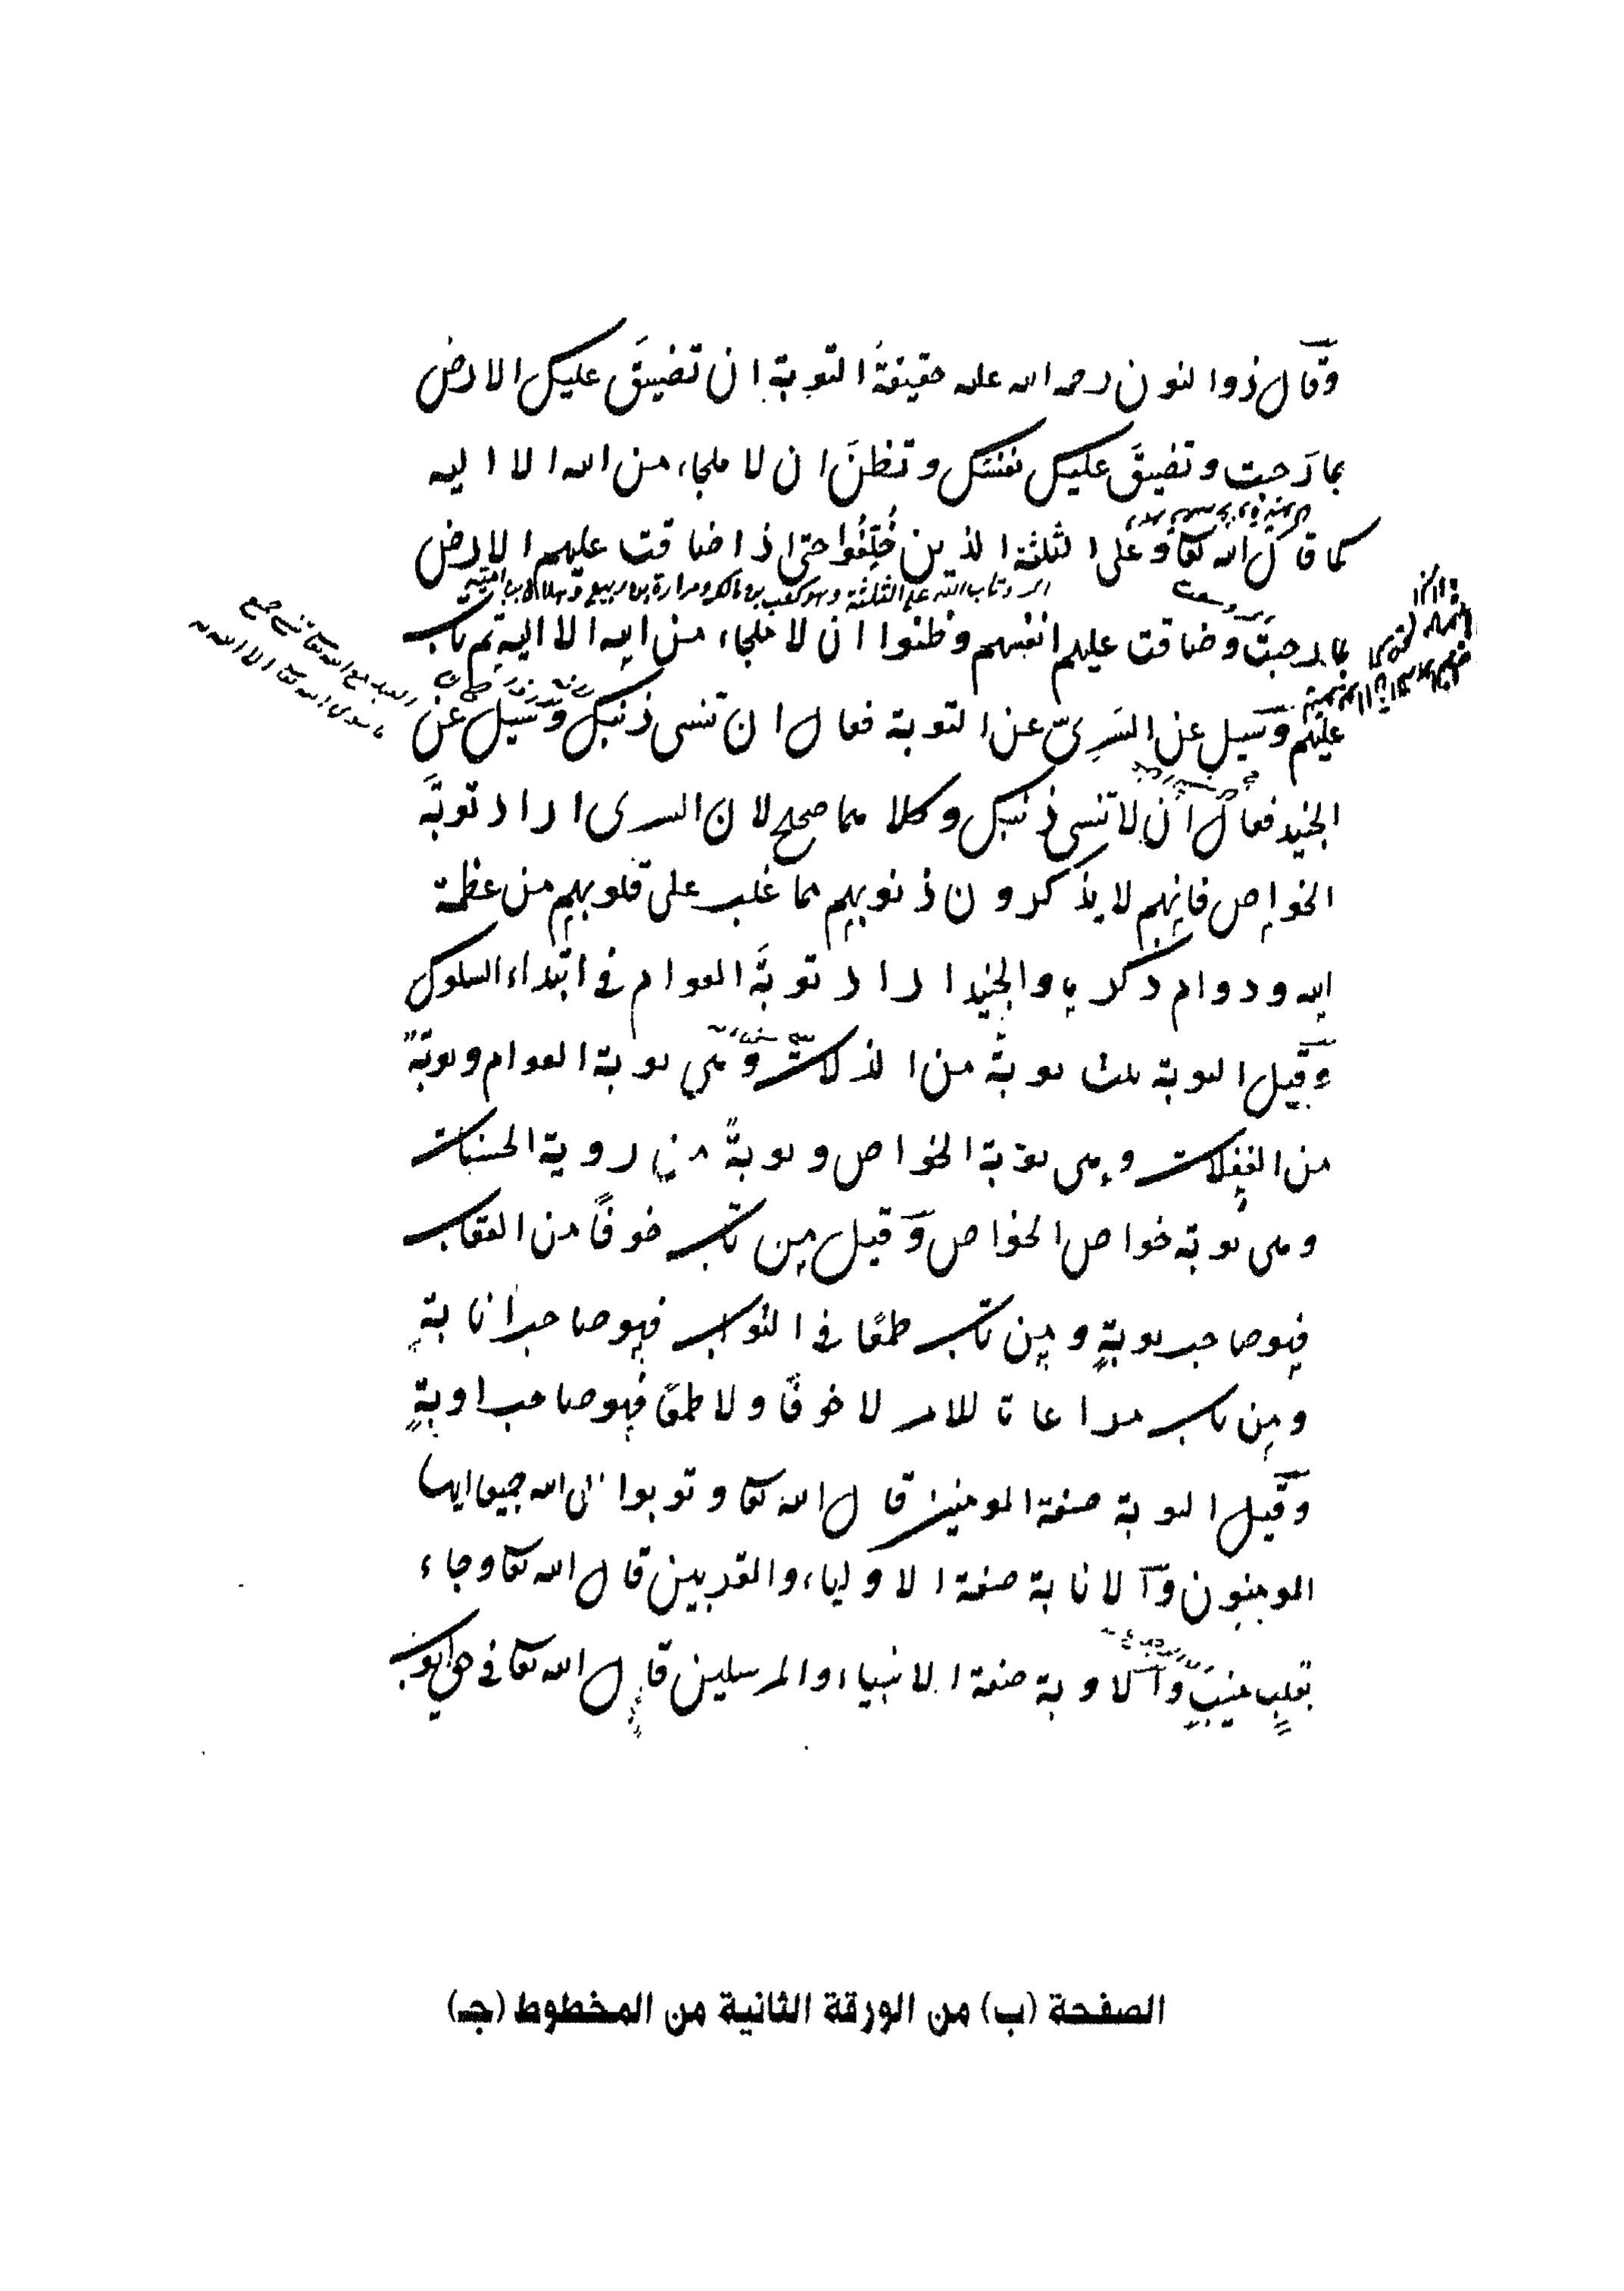 وقال ذوالنون رحمه الله عليه حقيقةُ التوبة ان تضيقَ عليك الارض
بما رَحبت وتضيقَ عليك نفسك وتظنَ ان لا ملجاء من الله الا اليه
كما قال الله تعا وعلى الثلثة الذين خُلِّفُوا حتى اذا ضاقت عليهم الارض
اى وتاب الله على الثلثة وهو كعب بن مالك ومرارة بن ربيع وهلال بن امية
بما رحبتْ وضاقت عليهم انفسهم وظنوا ان لا ملجاء من الله الا اليه ثم تاب
عليهم وسيل عن السَرِىّ عن التوبة فقال ان تنسى ذنبك وسيل عن
الجنيد فقال ان لا تنسى ذنبك وكلاهما صحيح لان السرى اراد توبَة
الخواص فانهم لا يذكرون ذنوبهم مما غلب على قلوبهم من عظمة
الله ودوام ذكره والجنيد اراد توبَة العوام فى ابتداء السلوك
وقيل التوبة ثلث توبةٌ من الذلات وهى توبة العوام وتوبةٌ
من الغفلات وهى توبة الخواص وتوبةٌ من روية الحسنات
وهى توبة خواص الخواص وقيل من تاب خوفًا من العقاب
فهو صاحب توبةٍ ومن تاب طمعًا فى الثواب فهو صاحب انابةٍ
ومن تاب مراعاة للامر لا خوفًا ولا طمعًا فهو صاحب اوبةٍ
وقيل التوبة صفة المومنين قال الله تعا وتوبوا الى الله جميعا ايها
المومنون والانابة صفة الاولياء والمقربين قال الله تعا وجاء
بقلبٍ منيبٍ والاوبة صفة الانبياء والمرسلين قال الله تعا فى حق ايوب
الصفحة (ب) من الورقة الثانية من المخطوط (جـ)